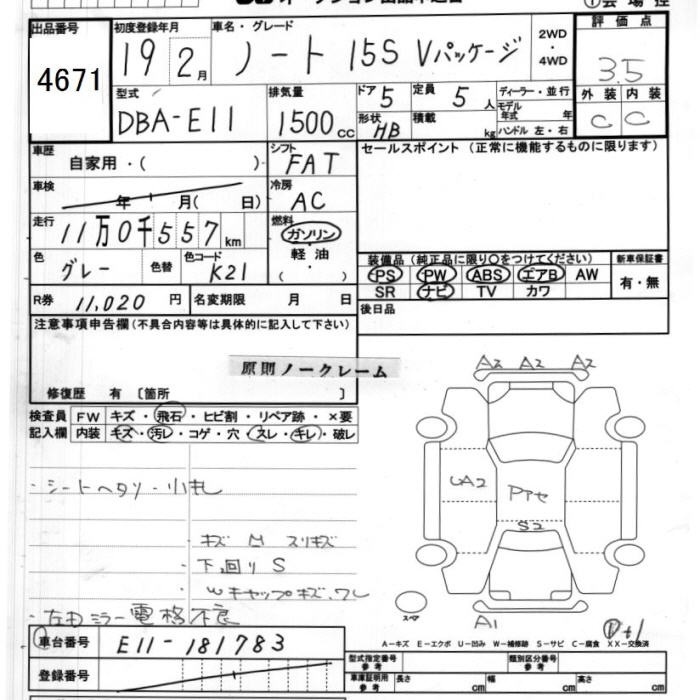 出品番号 4671
初度登録年月 19 2月
車名・グレード ノート 15S Vパッケージ
2WD・4WD
評価点 3.5
外装 内装
C C
型式 DBA-E11
排気量 1500cc
ドア 5 定員 5人
形状 HB 積載 kg
ディーラー・並行
モデル年式 年
ハンドル 左・右
車歴 自家用・( )
シフト FAT
セールスポイント(正常に機能するものに限ります)
車検 年 月( 日)
冷房 AC
走行 11万0千557km
燃料 ガソリン・軽油・( )
色 グレー 色替 色コード K21
装備品(純正品に限り○をつけてください) 新車保証書
PS PW ABS エアB AW 有・無
SR ナビ TV カワ
R券 11,020円 名変期限 月 日
後日品
注意事項申告欄(不具合内容等は具体的に記入して下さい)
原則ノークレーム
修復歴 有 〔箇所 〕
検査員 FW キズ・飛石・ヒビ割・リペア跡・×要
記入欄 内装 キズ・汚レ・コゲ・穴・スレ・キレ・破レ
A2 A2 A2
UA2
S2
A1
・シートヘタリ・小キレ
キズ M スリキズ
下回り S
Wキャップキズ、ワレ
・左右ミラー電格不良
スペア
車台番号 E11-181783
A-キズ E-エクボ U-凹み W-補修跡 S-サビ C-腐食 XX-交換済
登録番号
型式指定番号 参考 類別区分番号 参考
車庫証明用 参考 長さ cm 幅 cm 高さ cm